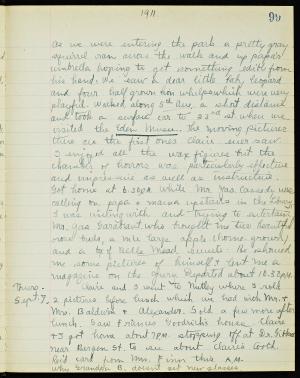 1911
99
As we were entering the park a pretty gray
squirrel ran across the walk and up papa's
umbrella hoping to get something edible from
his hand. We saw a dear little leopard
and four half grown lion whelps which were very
playful. Walked along 5th Ave. a short distance
and took a surface car to 23rd st when we
visited the Eden Musee. The moving pictures
there are the first ones Claire ever saw.
I enjoyed all the wax figures but the
chamber of horrors was particularly effective
and impressive as well as instructive.
Got home at 6.30 P.M. while Mr. Jas. Cassedy was
calling on papa & mama upstairs in the library
I was visiting with and trying to entertain
Mr. Gas. Garabrant who brought me two beautiful
rose buds, a nice large apple (home grown),
and a of sweets. He showed
me some pictures of himself & lent me a
magazine on the . Departed about 10.30 P.M.
Thurs. Claire and I went to Nutley where I sold
Sept. 7, 2 pictures before lunch which we had with Mr. &
Mrs. Baldwin & Alexander. Sold a few more after
lunch. Saw Francis Goodrich's house. Claire
& I got home about 7 P.M. stopping off at Dr.
near Bergen St. to see about Claire's tooth.
Rec'd card from Mrs. Finn this A.M.
why Grandon B. doesn't get new glasses